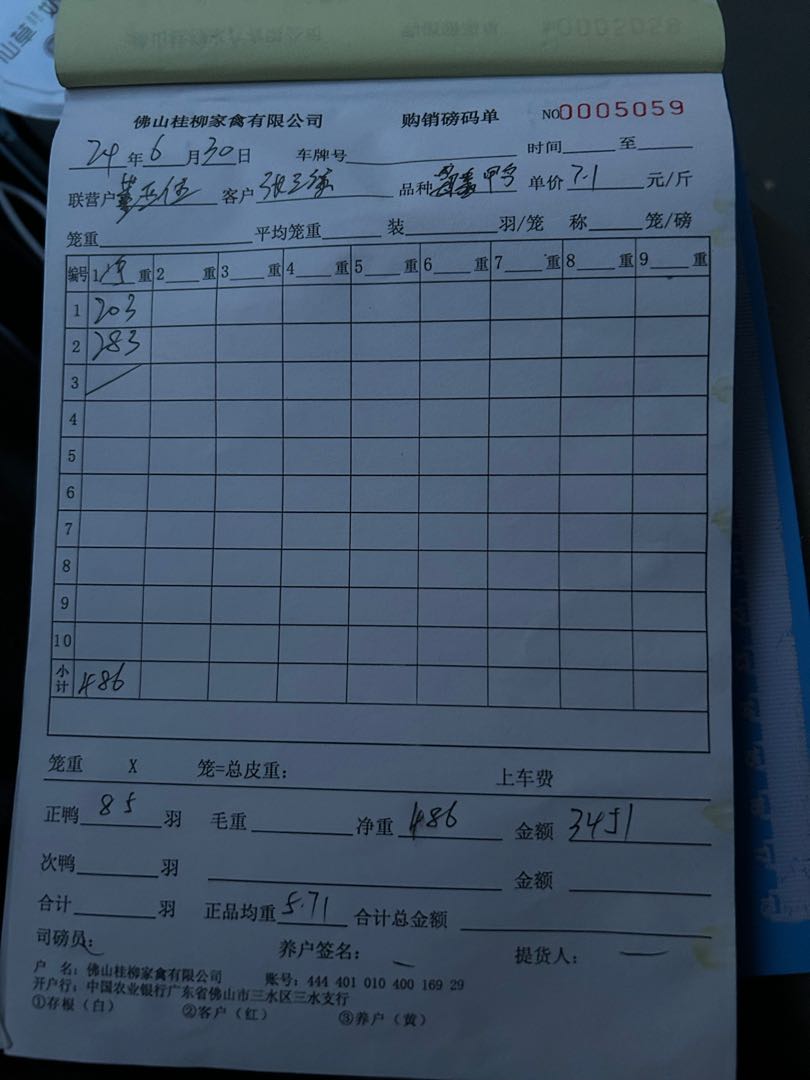 佛山桂柳家禽有限公司 购销磅码单 NO0005059
24年6月30日 车牌号 时间 至
联营户 客户 品种 鸭 单价7.1元/斤
笼重 平均笼重 装 羽/笼 称 笼/磅
编号 1净重 2 重 3 重 4 重 5 重 6 重 7 重 8 重 9 重
1 203
2 283
3 /
4
5
6
7
8
9
10
小计 486
笼重 X 笼=总皮重: 上车费
正鸭85羽 毛重 净重486 金额3451
次鸭 羽 金额
合计 羽 正品均重5.71 合计总金额
司磅员: 养户签名: 提货人:
户 名: 佛山桂柳家禽有限公司 账号: 444 401 010 400 169 29
开户行: 中国农业银行广东省佛山市三水区三水支行
①存根(白) ②客户(红) ③养户(黄)